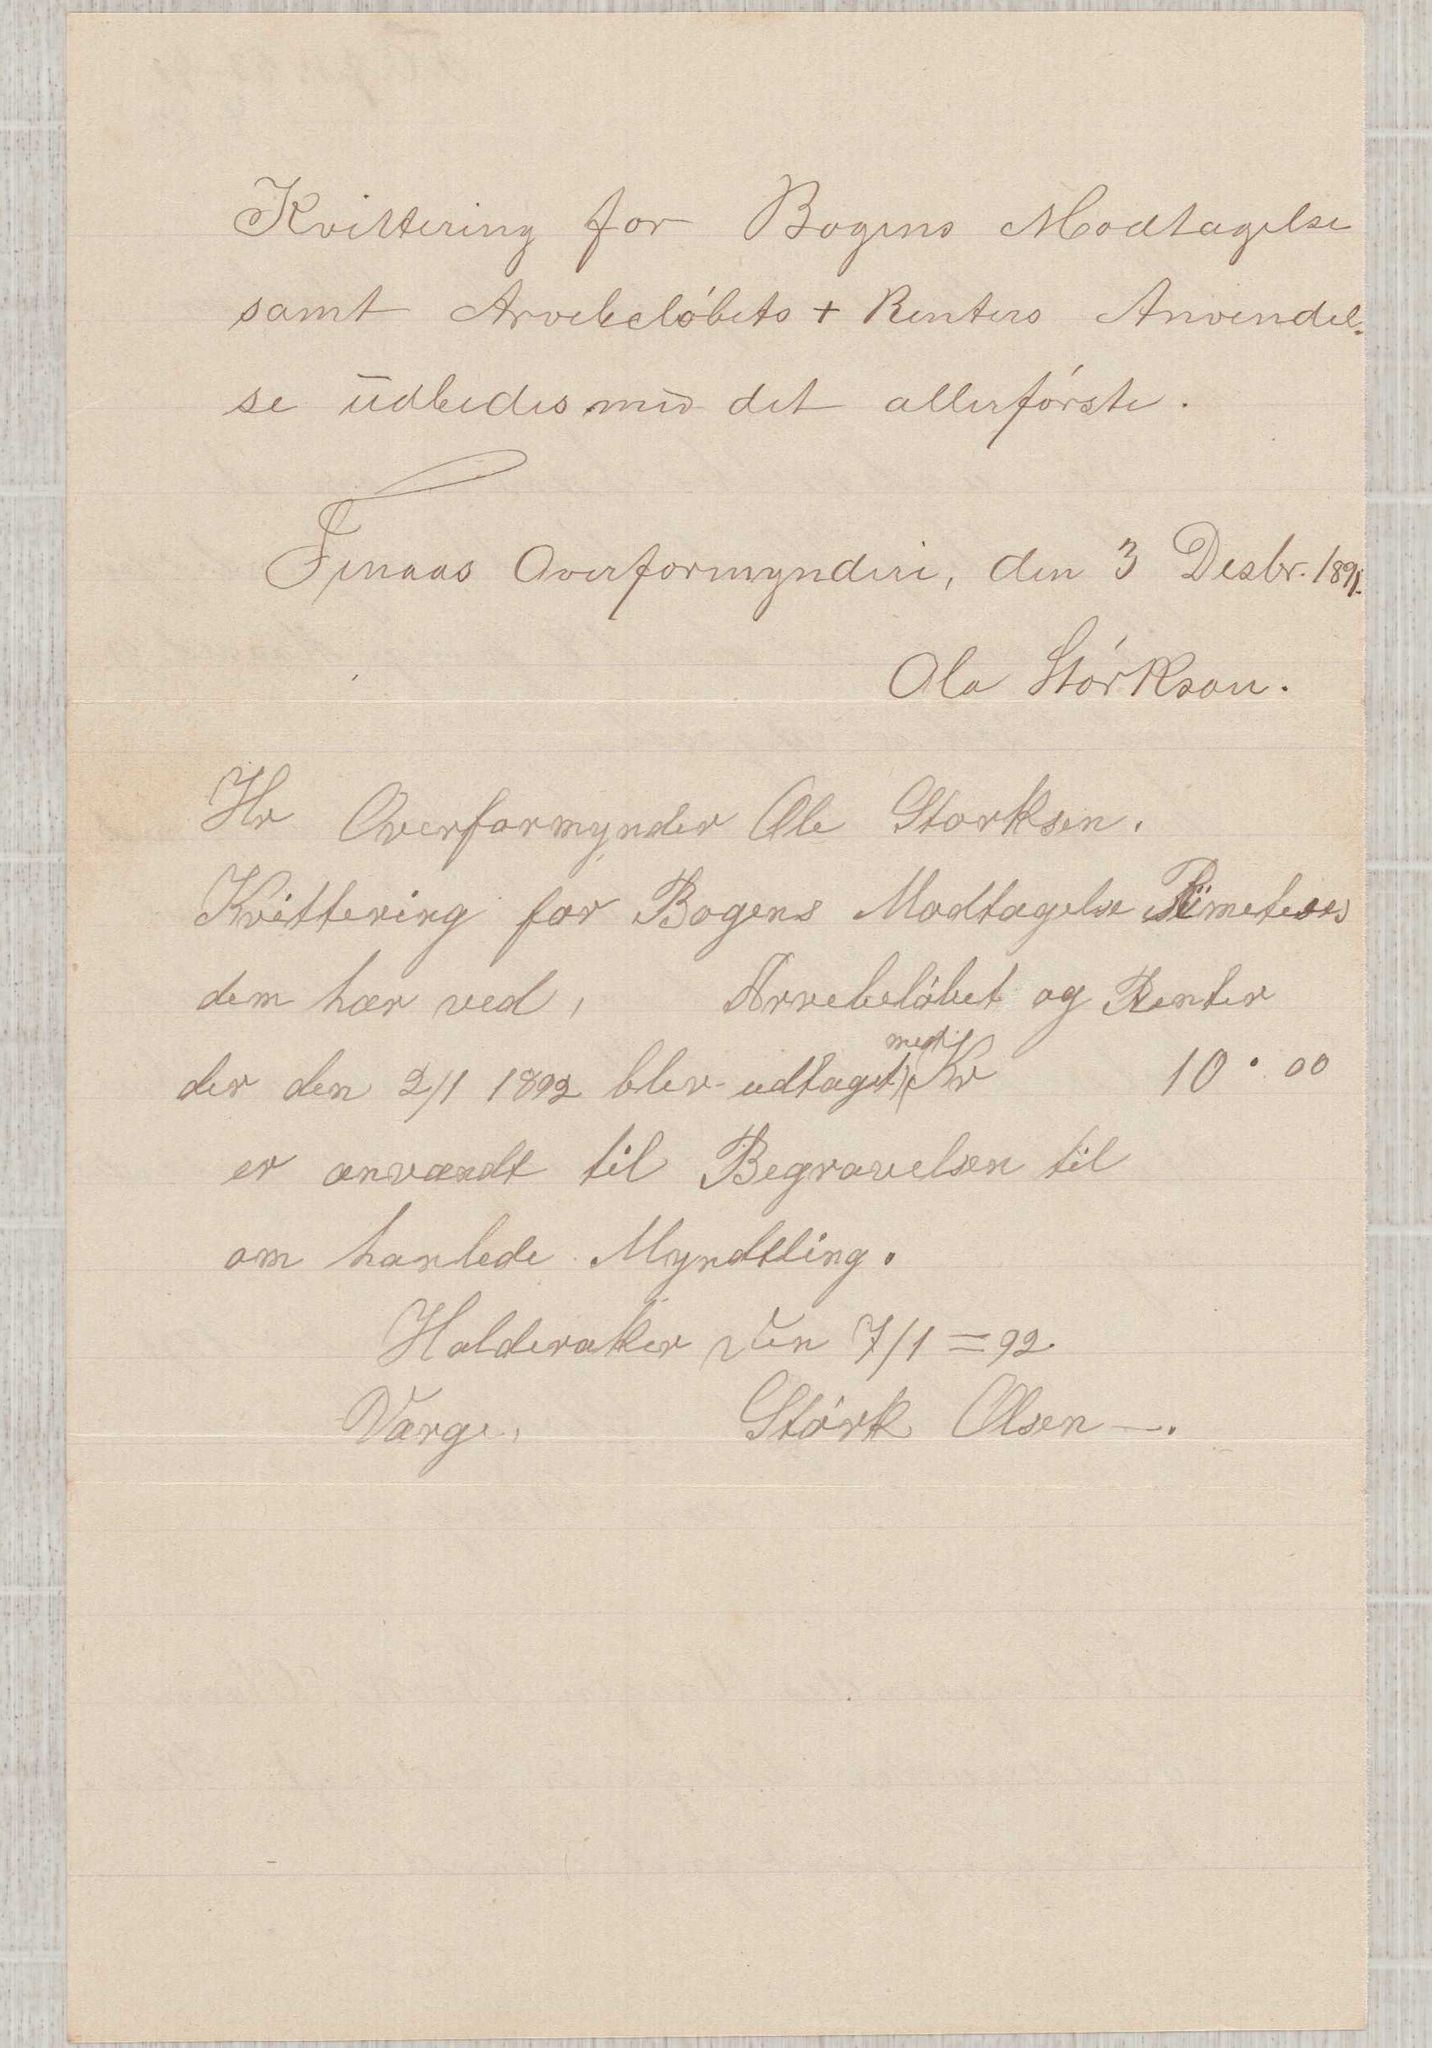 Kvittering for Bogens Modtagelse
samt Arvebeløbets + Renters Anvendel-
se üdbedes med det allerførste.
Finaas Overformynderi, den 3 Desbr. 1891.
Ola Størkson.
Hr Overformynder Ole Storksen.
Kvittering for Bogens Modtagelse Rimeteres
dem hær ved, Arvebeløbet og Renter
der den 2/1 1892 blev udtaget med Kr 10.00
er anvændt til Begravelsen til
om hanlede Myndtling.
Halderaker den 7/1 = 92.
Værge, Størk Olsen —.